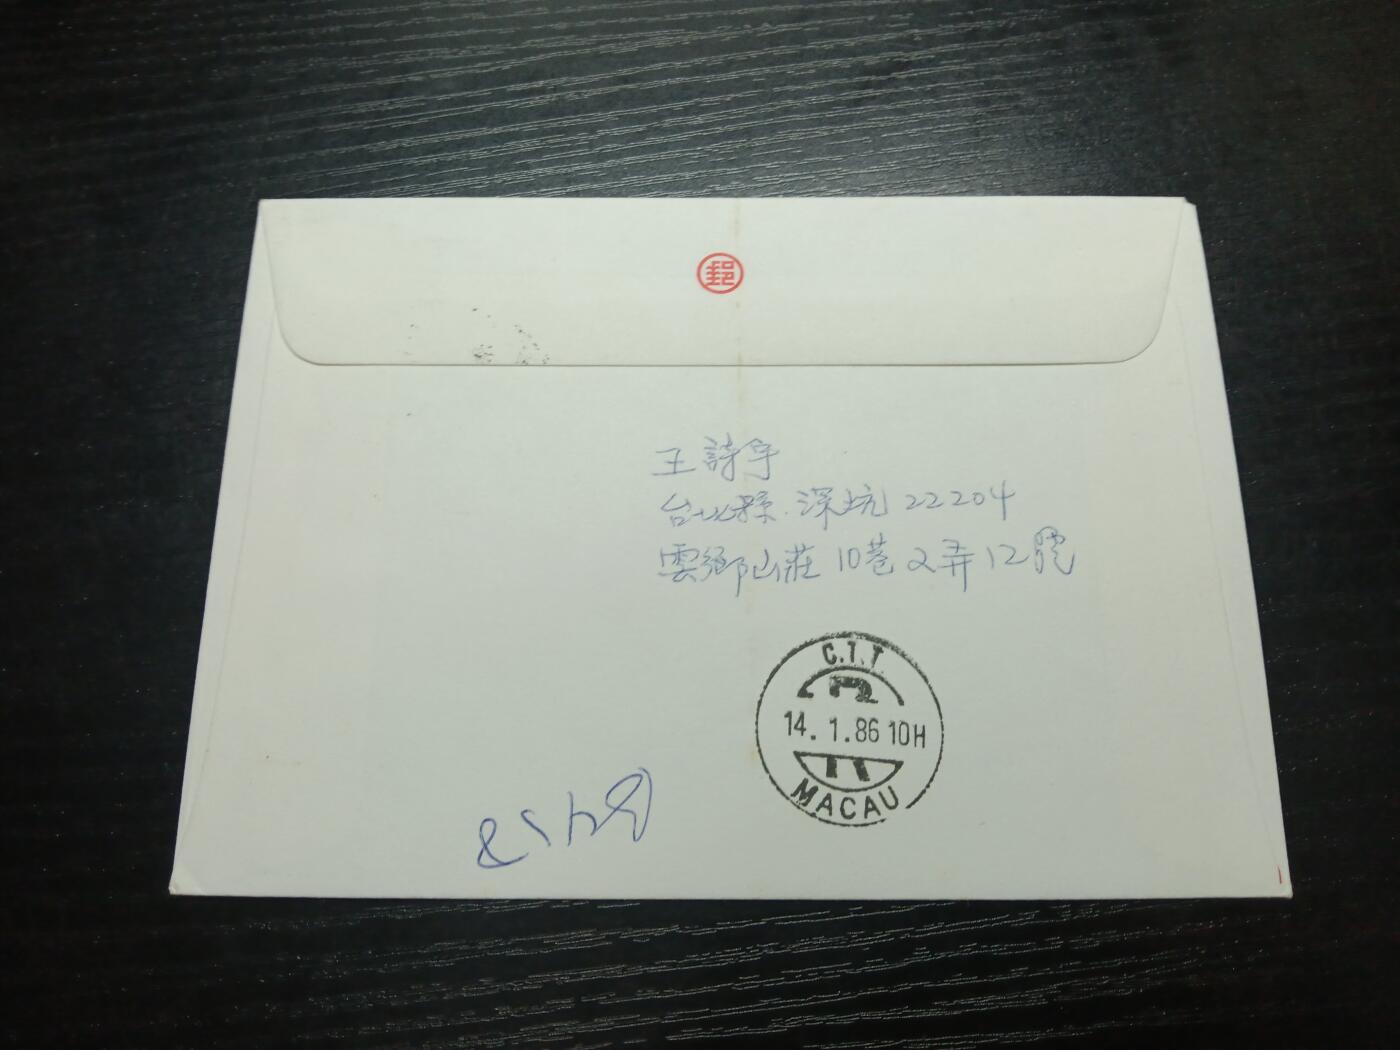 郵
王詩宇
台北縣.深坑 22204
雲鄉山莊 10巷 2弄 12號
C.T.T
14. 1.86 10H
MACAU